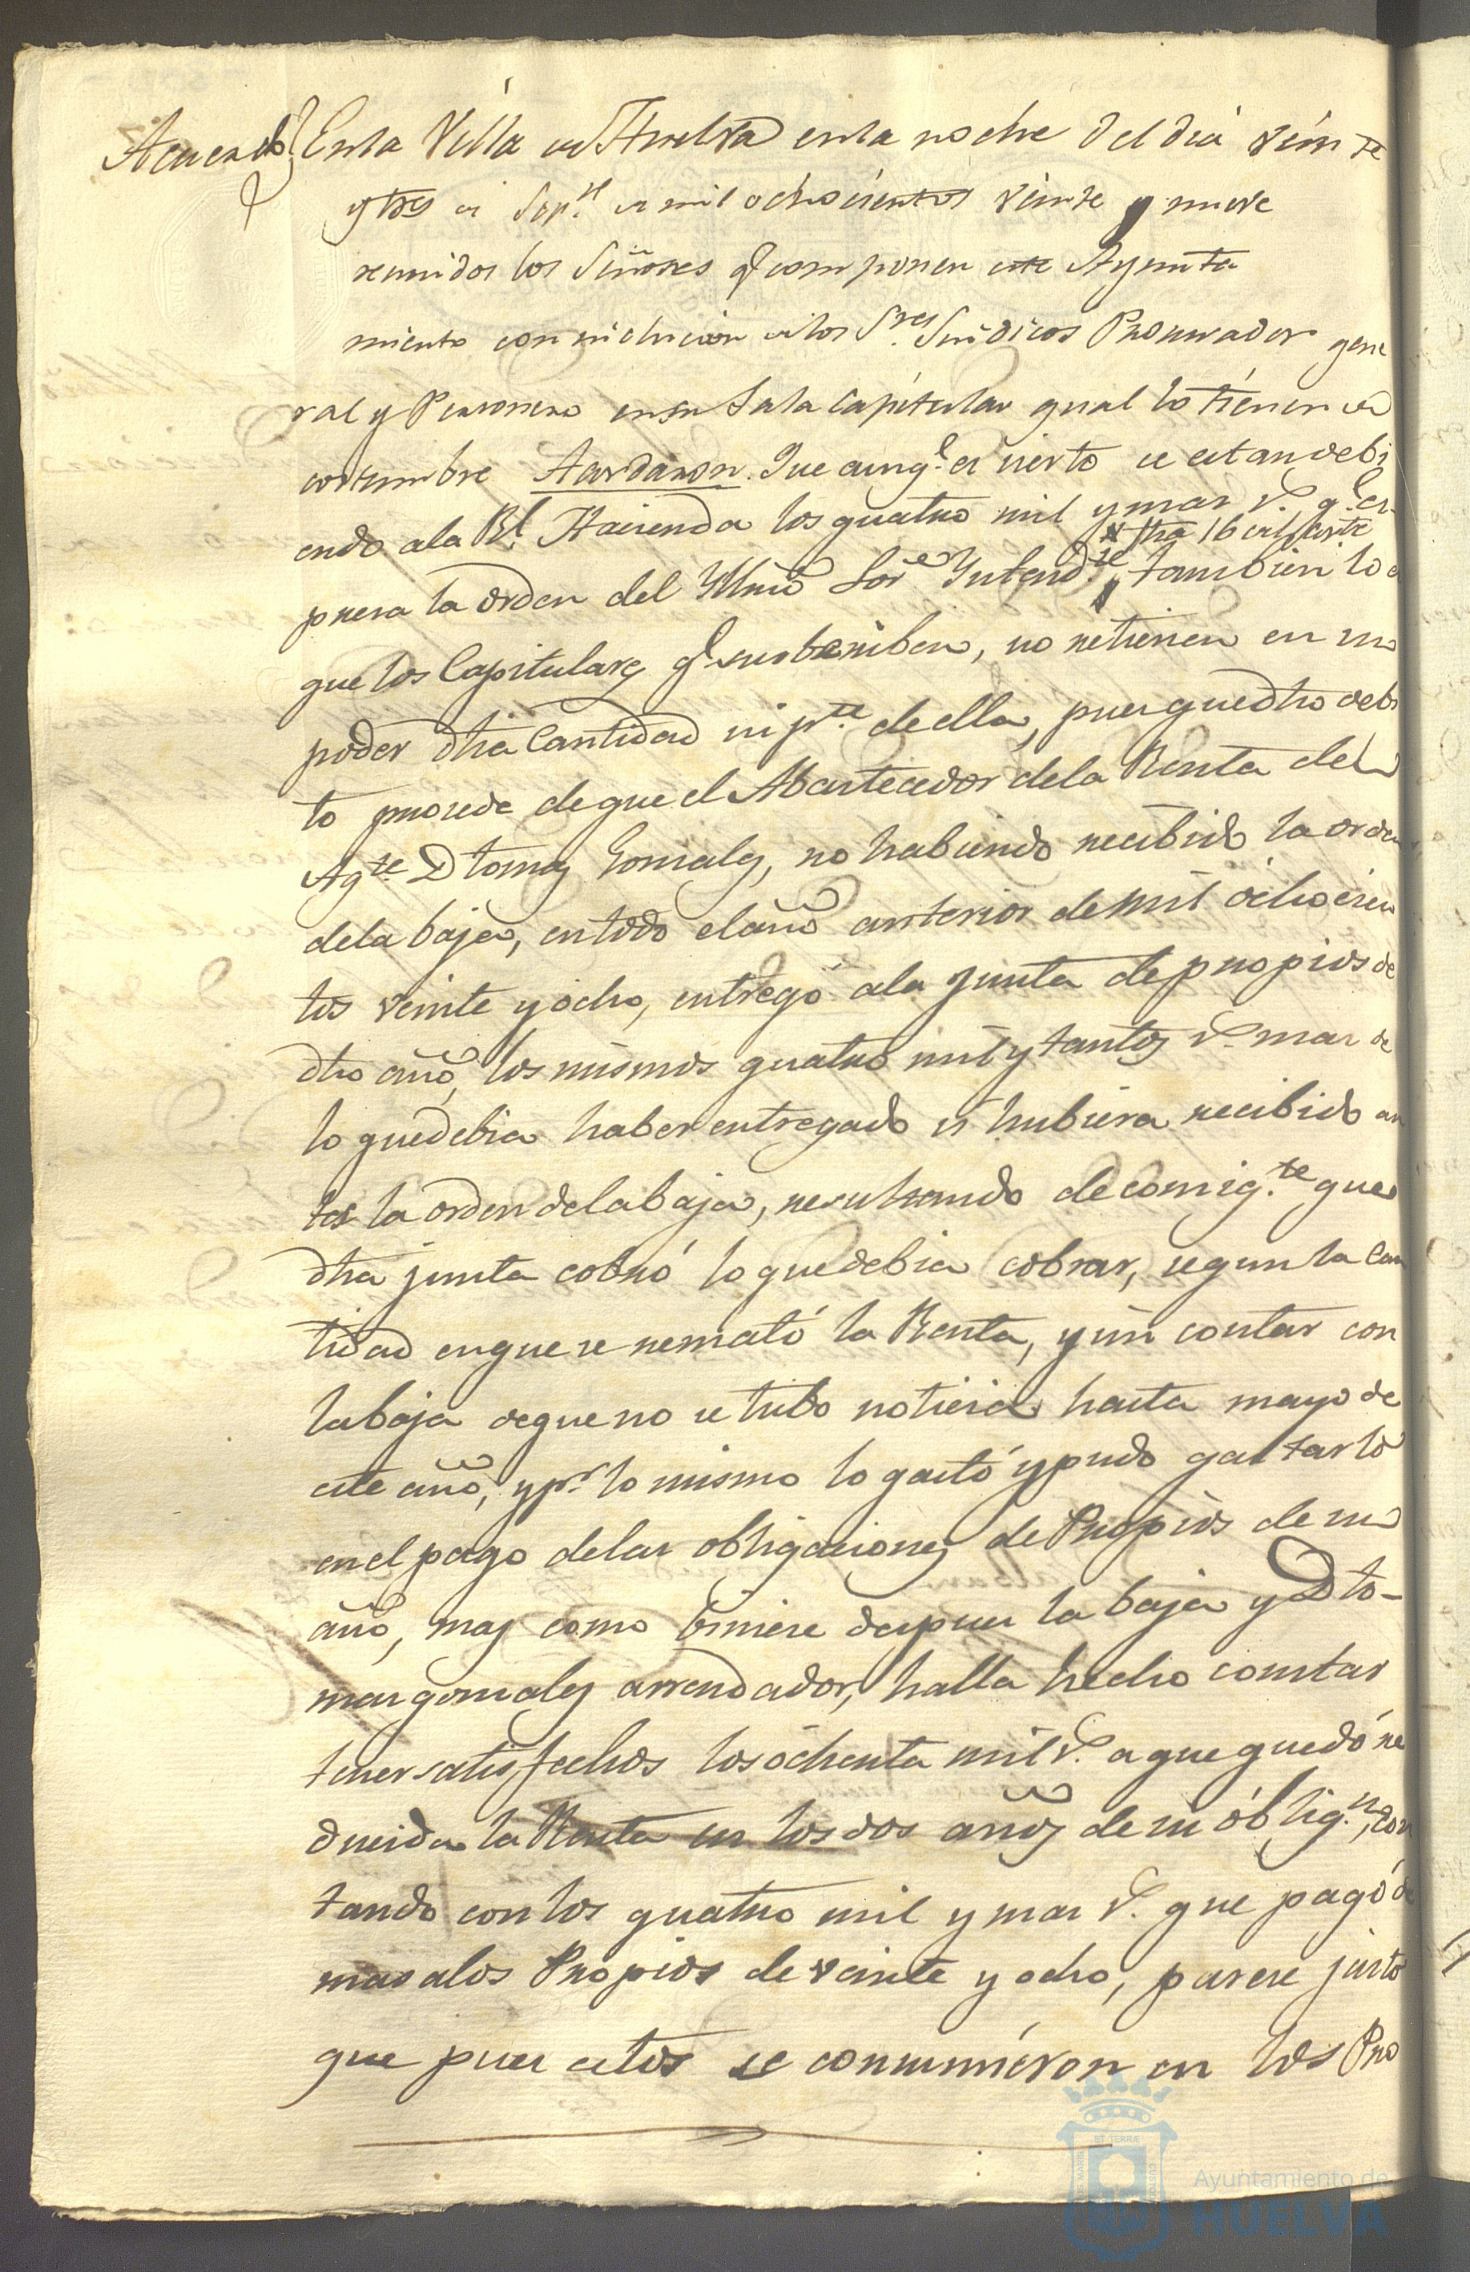 Acuerdo} En la Villa de Huelva en la noche del dia veinte
y tres de Sep.re de mil ochocientos veinte y nueve
reunidos los Señores q.e componen este Ayunta
miento con inclucion de los S.res Sindicos Procurador gene
ral y Personero en su Sala Capitular qual lo tienen de
costumbre Acordaron. Que aunq.e es cierto se estan debi
endo a la R.l Hacienda los quatro mil y mas r.s q.e es-
presa la orden del Yllmo Sor Yntend.te fha 16 del corr.te tambien lo es
que los Capitulares q.e subscriben, no retienen en su
poder dha Cantidad ni p.te de ella, pues que dho debi
to procede de que el Abastecedor de la Renta del
Ag.te D Tomas Gonzales, no habiendo recibido la orden
de la baja, en todo el año anterior de mil ochocien
tos veinte y ocho, entregó a la Junta de propios de
dho año, los mismos quatro mil y tantos r.s mas de
lo que debia haber entregado si hubiera recibido an
tes la orden de la baja, resultando de consig.te que
dha junta cobró lo que debia cobrar, segun la Can
tidad en que se remató la Renta, y sin contar con
la baja de que no se tubo noticia hasta mayo de
este año, y p.r lo mismo lo gastó y pudo gastarlo
en el pago de las obligaciones de Propios de su
año, mas como biniese despues la baja y D to-
mas gonzales arrendador, halla hecho constar
tener satisfechos los óchenta mil r.s a que quedó re
ducida la Renta en los dos años de su oblig.n, con
tando con los quatro mil y mas r.s que pagó de
mas a los Propios de veinte y ocho, parece justo
que pues estos se consumieron en los Pro
ET TERRÆ
MARIS
CUSTODIA
Ayuntamiento de
HUELVA